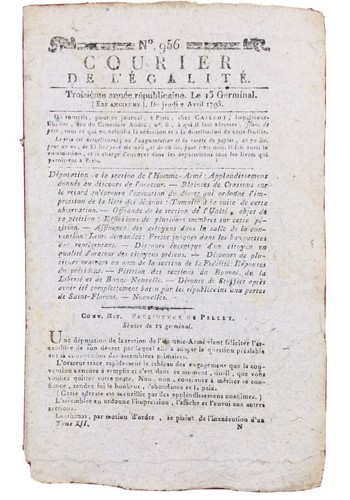 N°. 956
COURIER
DE L'ÉGALITÉ.
Troisième année républicaine. Le 13 Germinal.
(Ere ancienne). Du jeudi 2 Avril 1795.
On souscrit, pour ce journal, à Paris, chez Caillot, imprimeur-
à Paris.
Députation de la section de l'Homme-Armé: Applaudissemens
donnés au discours de l'orateur. — Plaintes de Crassous sur
le retard qu'éprouve l'exécution du décret qui ordonne l'im-
pression de la liste des détenus: Tumulte à la suite de cette
observation. — Offrande de la section de l'Unité, objet de
sa pétition: Réflexions de plusieurs membres sur cette pé-
tition. — Affluence des citoyens dans la salle de la con-
vention: Leurs demandes: Presse jusques dans les banquettes
des représentans. — Discours énergique d'un citoyen en
qualité d'orateur des citoyens présens. — Discours de plu-
sieurs orateurs au nom de la section de la Fidélité: Réponse
du président. — Pétition des sections du Bonnet, de la
Liberté et de Bonne-Nouvelle. — Déroute de Stofflet après
avoir été complettement battu par les républicains aux portes
de Saint-Florent. — Nouvelles.
Conv. Nat. Présidence de Pellet.
Séance du 12 germinal.
Une députation de la section de l'Homme-Armé vient féliciter l'as-
semblée de son décret par lequel elle a adopté la question préalable
sur la convocation des assemblées primaires.
L'orateur trace rapidement le tableau des engagemens que la con-
vention a encore à remplir et c'est dans ce moment, dit-il, que vous
voudriez quitter votre poste. Non, non, continuez à mériter sa con-
fiance, rendez lui le bonheur, l'abondance et la paix.
(Cette adresse est accueillie par des applaudissemens unanimes.)
L'assemblée en ordonne l'impression, l'affiche et l'envoi aux autres
sections.
par motion d'ordre, se plaint de l'inexécution d'un
Tome XII. N